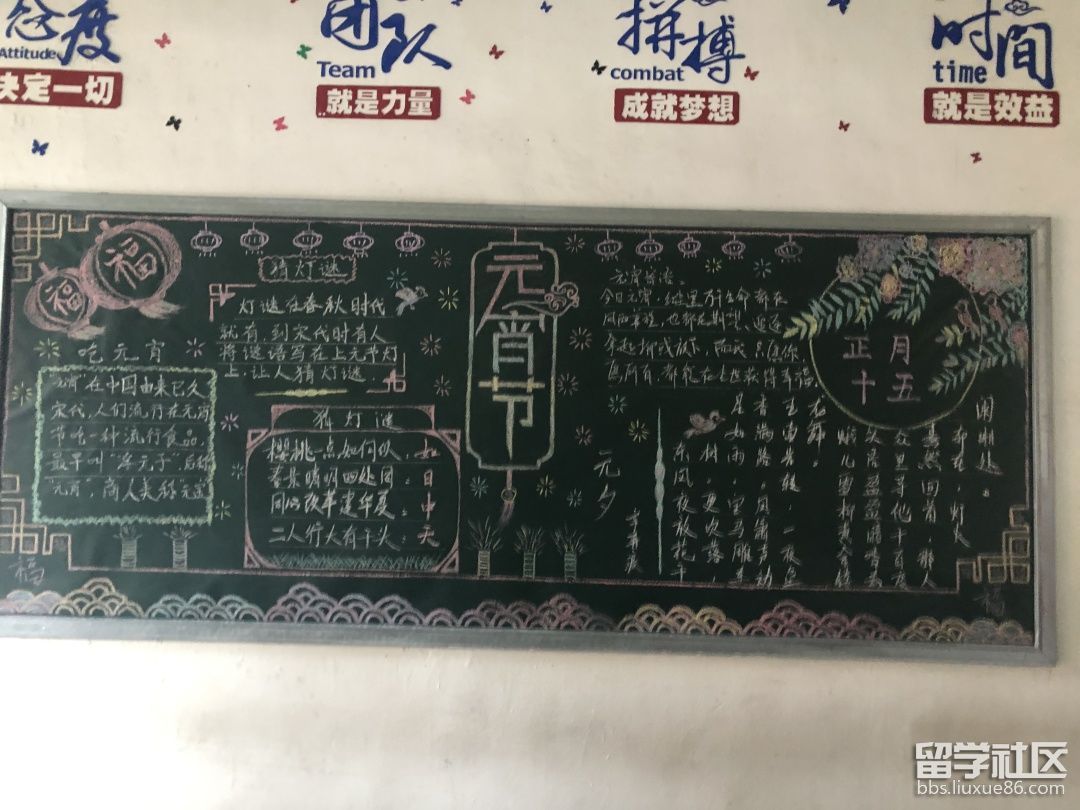 态度
Attitude
决定一切
团队
Team
就是力量
拼搏
combat
成就梦想
时间
time
就是效益
福
福
猜灯谜
灯谜在春秋时代
就有,到宋代时有人
将谜语写在上元节灯
上,让人猜灯谜.
吃元宵
元宵在中国由来已久
宋代,人们流行在元宵
节吃一种流行食品,
最早叫"浮元子",后称
元宵,商人美称元宝
猜灯谜
樱桃一点如何似
春景晴明四处同
同心改革建华夏
二人行大有干头
如
日
中
天
元宵节
元宵节
今日元宵
正月
十五
元夕
东风夜放花千
树,更吹落,
星如雨,宝马雕车
香满路,凤箫声动
玉壶光转,一夜鱼
龙舞。
蛾儿雪柳黄金缕
笑语盈盈暗香去
众里寻他千百度
蓦然回首,那人
却在,灯火
阑珊处。
福
福
留学社区
bbs.liuxue86.com